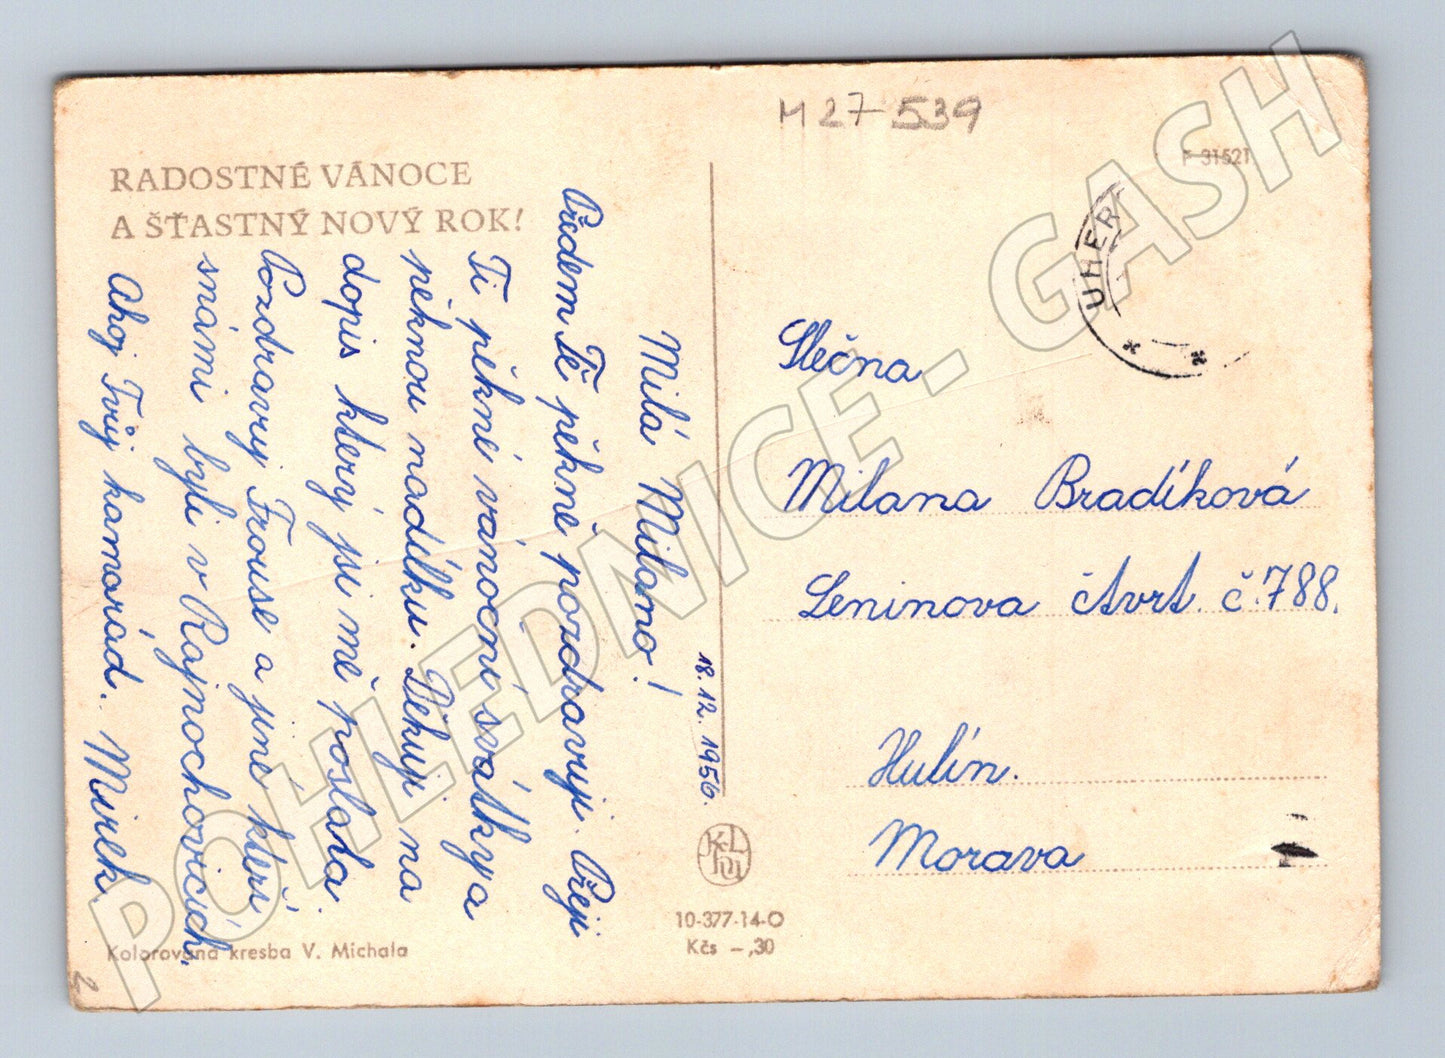 M 27-539
F 31521
RADOSTNÉ VÁNOCE
A ŠŤASTNÝ NOVÝ ROK!
UHERS
Milá Milano!
Předem Tě pěkně pozdravuji. Přeji
Ti pěkné vánoční svátky a
pěknou nadílku. Děkuji na
dopis který jsi mě poslala.
Pozdravuj Frouse a jiné kteří
snámi byli v Rajnochovicích.
Ahoj Tvůj kamarád. Mirek.
18.12.1956.
Slečna
Milana Bradíková
Leninova čtvrt. č.788.
Hulín.
Morava
10-377-14-O
Kčs –,30
Kolorovaná kresba V. Michala
2
POHLEDNICE - GASH